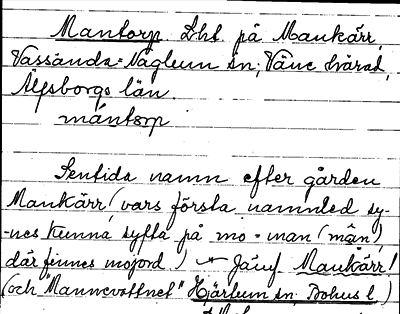 Mantorp Lht på Mankärr,
Vassända-Naglum sn; Väne härad,
Älfsborgs län.
måntorp
Sentida namn efter gården
Mankärr (vars första namnled sy-
nes kunna syfta på mo-man (mån)
där finnes mojord.) Jämf. Mankärr!
(och "Mannevattnet" Hjärtum sn, Bohus l.)